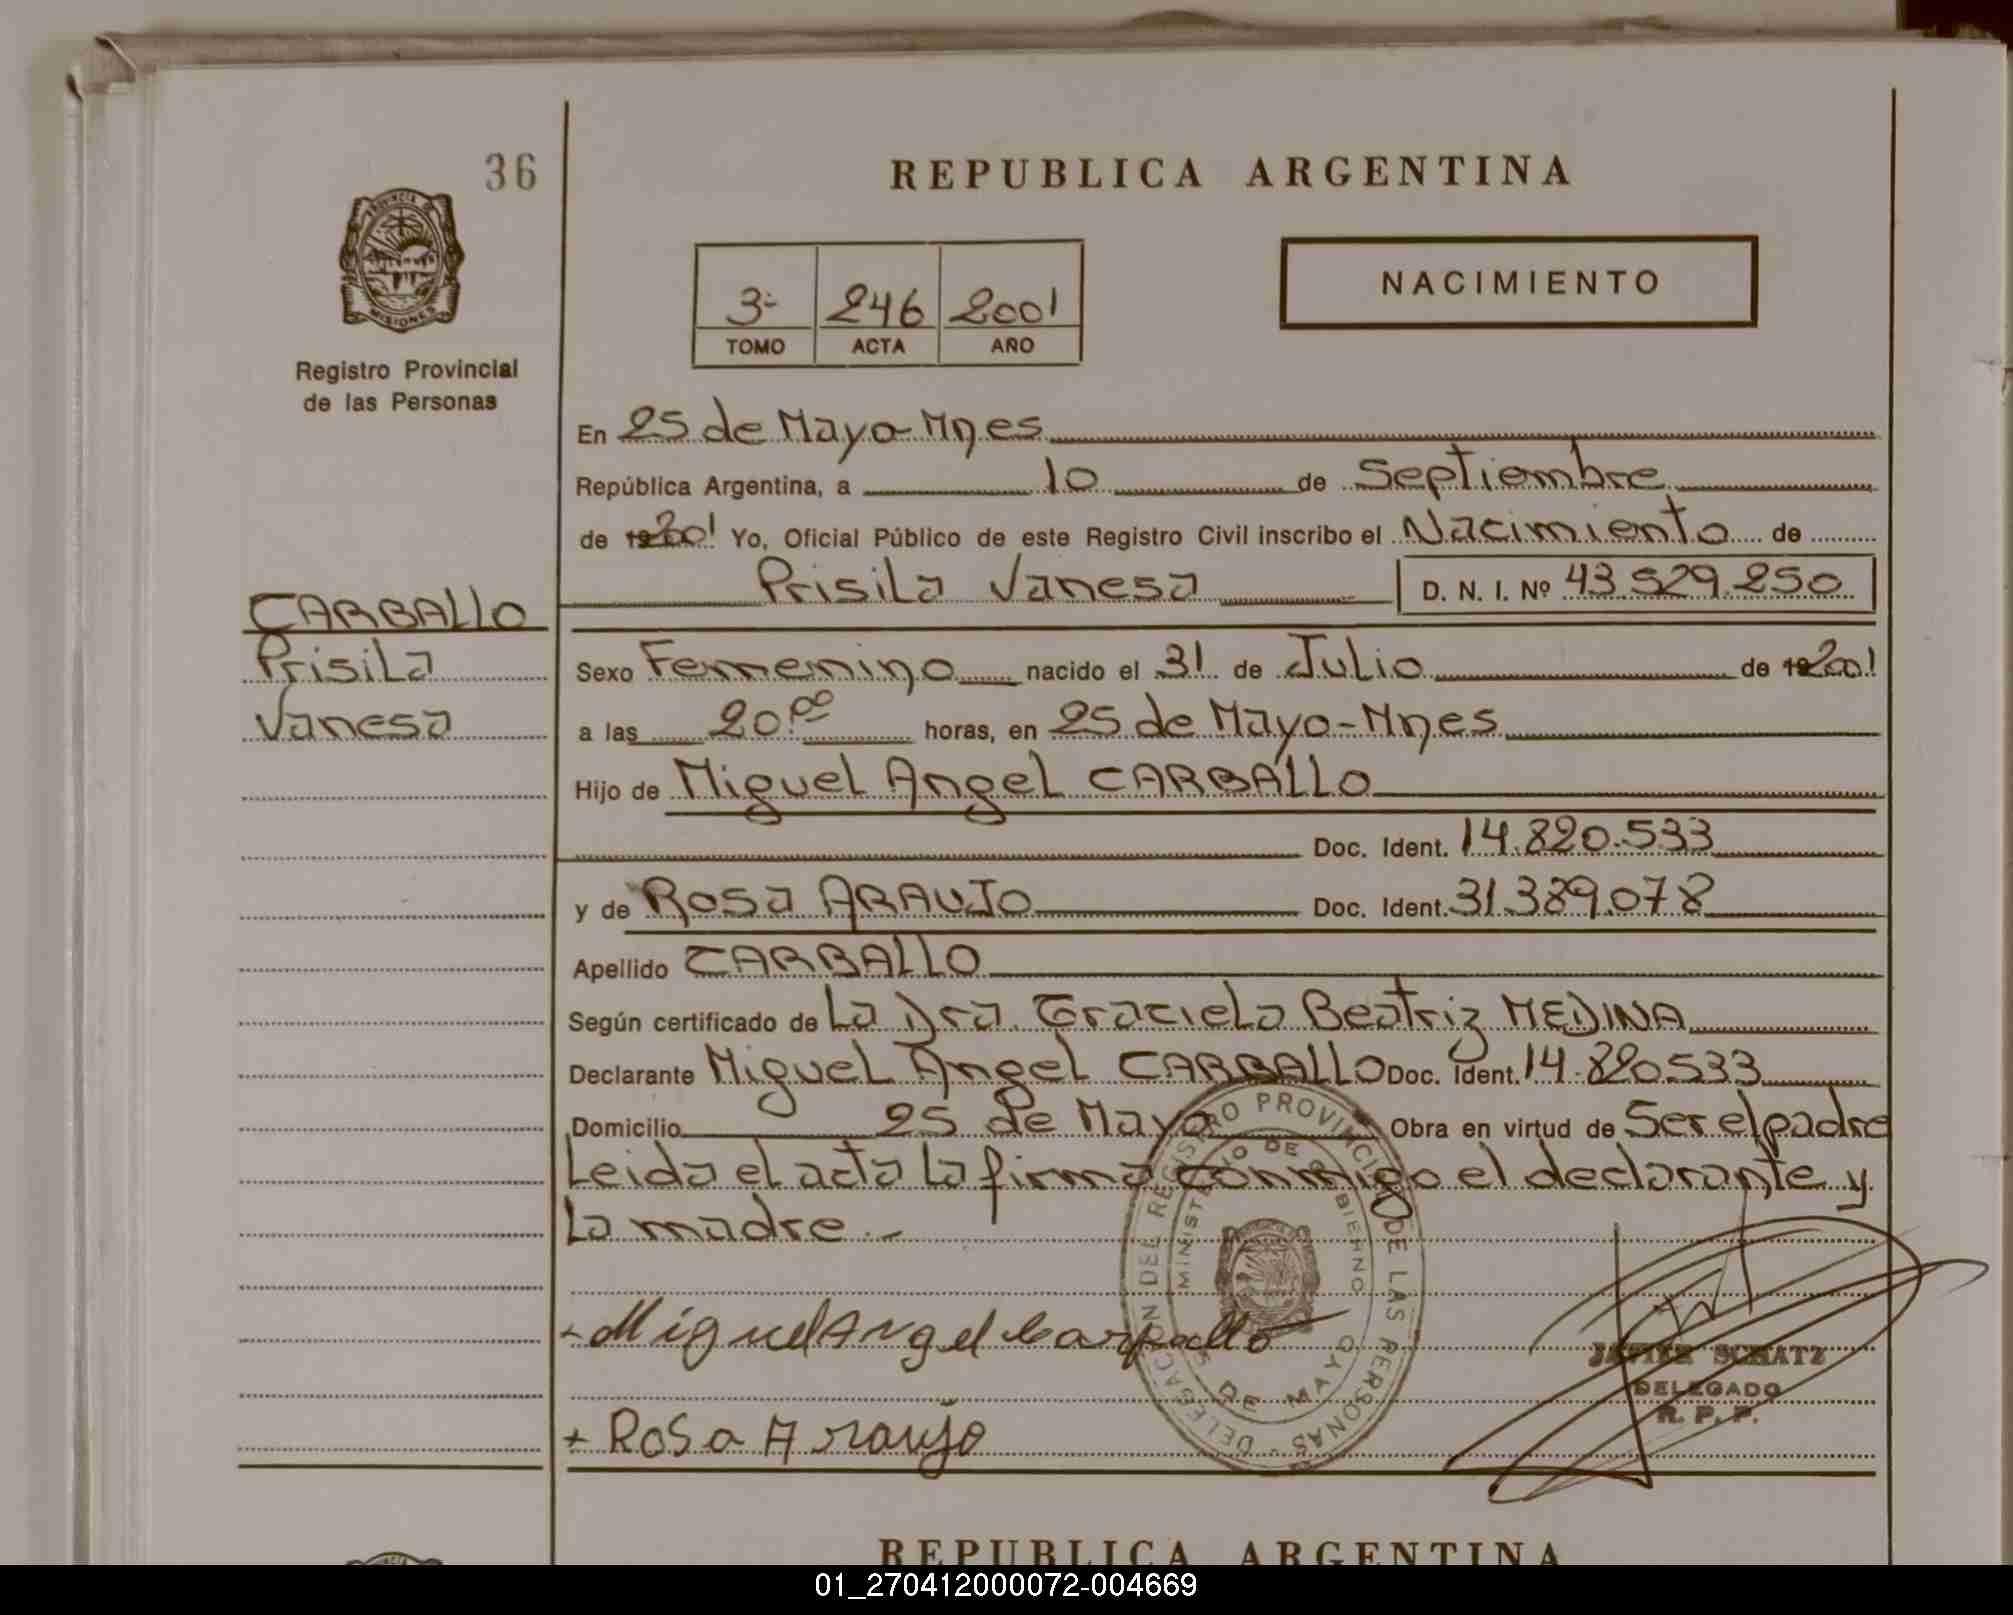 36
REPUBLICA ARGENTINA
PROVINCIA D
MISIONES
Registro Provincial
de las Personas
3- 246 2001
TOMO ACTA AÑO
NACIMIENTO
En 25 de Mayo-Mnes
República Argentina, a 10 de Septiembre
de 2001 Yo, Oficial Público de este Registro Civil inscribo el Nacimiento de
Prisila Vanesa D. N. I. Nº 43.529.250
CARBALLO
Prisila
Vanesa
Sexo Femenino nacido el 31 de Julio de 2001
a las 20.00 horas, en 25 de Mayo-Mnes
Hijo de Miguel Angel CARBALLO
Doc. Ident. 14.820.533
y de Rosa ARAUJO Doc. Ident. 31.389.078
Apellido CARBALLO
Según certificado de La Dra. Graciela Beatriz MEDINA
Declarante Miguel Angel CARBALLO Doc. Ident. 14.820.533
Domicilio 25 de Mayo Obra en virtud de Ser el padre
Leida el acta la firma conmigo el declarante y
la madre.-
DELEGACION DEL REGISTRO PROVINCIAL DE LAS PERSONAS
MINISTERIO DE GOBIERNO
DE MAYO
Miguel Angel Carballo
JAVIER SCHATZ
DELEGADO
R. P. P.
+ Rosa Araujo
REPUBLICA ARGENTINA
01_270412000072-004669